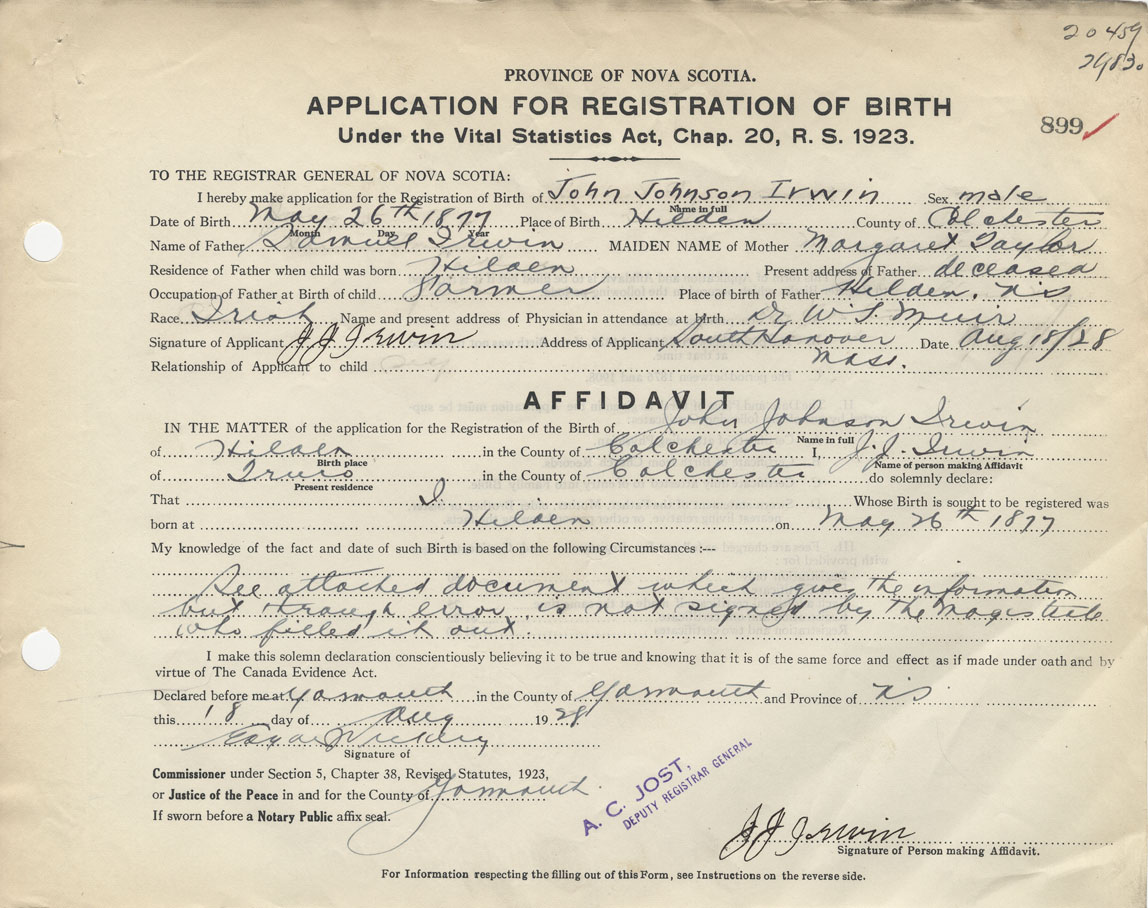 20459
2983.
PROVINCE OF NOVA SCOTIA.
APPLICATION FOR REGISTRATION OF BIRTH
899
Under the Vital Statistics Act, Chap. 20, R. S. 1923.
TO THE REGISTRAR GENERAL OF NOVA SCOTIA:
I hereby make application for the Registration of Birth of John Johnson Irwin Sex male
Name in full
Date of Birth May 26th 1877 Place of Birth Hilden County of Colchester
Month Day Year
Name of Father Samuel Irwin MAIDEN NAME of Mother Margaret Taylor
Residence of Father when child was born Hilden Present address of Father deceased
Occupation of Father at Birth of child Farmer Place of birth of Father Hilden, NS
Race Irish Name and present address of Physician in attendance at birth Dr W S Muir
Signature of Applicant J J Irwin Address of Applicant South Hanover Date Aug 18/28
Mass.
Relationship of Applicant to child
AFFIDAVIT
IN THE MATTER of the application for the Registration of the Birth of John Johnson Irwin
Name in full
of Hilden in the County of Colchester I, J. J. Irwin
Birth place Name of person making Affidavit
of Truro in the County of Colchester do solemnly declare:
Present residence
That I Whose Birth is sought to be registered was
born at Hilden on May 26th 1877
My knowledge of the fact and date of such Birth is based on the following Circumstances :---
See attached document which gives the information
but through error, is not signed by the Magistrate
who filled it out.
I make this solemn declaration conscientiously believing it to be true and knowing that it is of the same force and effect as if made under oath and by
virtue of The Canada Evidence Act.
Declared before me at Yarmouth in the County of Yarmouth and Province of NS
this 18 day of Aug 1928
Signature of
Commissioner under Section 5, Chapter 38, Revised Statutes, 1923,
or Justice of the Peace in and for the County of Yarmouth
If sworn before a Notary Public affix seal.
A. C. JOST,
DEPUTY REGISTRAR GENERAL
J J Irwin
Signature of Person making Affidavit.
For Information respecting the filling out of this Form, see Instructions on the reverse side.